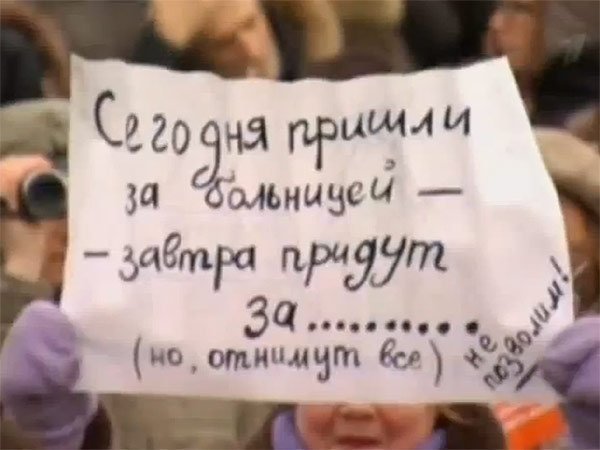 Сегодня пришли
за больницей —
- завтра придут
за..........
(но, отнимут все)
не
позволим!